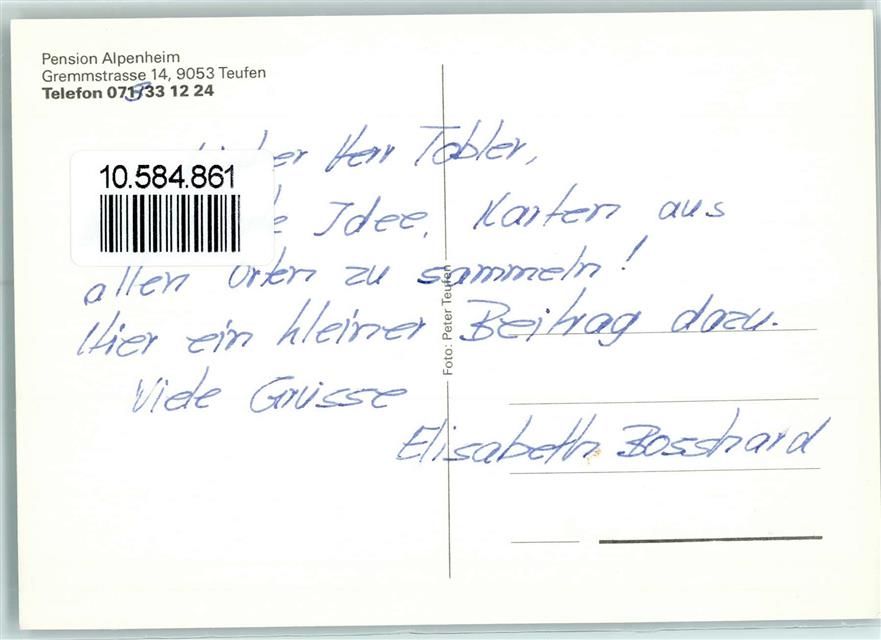 Pension Alpenheim
Gremmstrasse 14, 9053 Teufen
Telefon 071/33 12 24
Herr Tobler,
10.584.861
Idee, Karten aus
allen Orten zu sammeln!
Hier ein kleiner Beitrag dazu.
Viele Grüsse
Elisabeth Bosshard
Foto: Peter Teufen